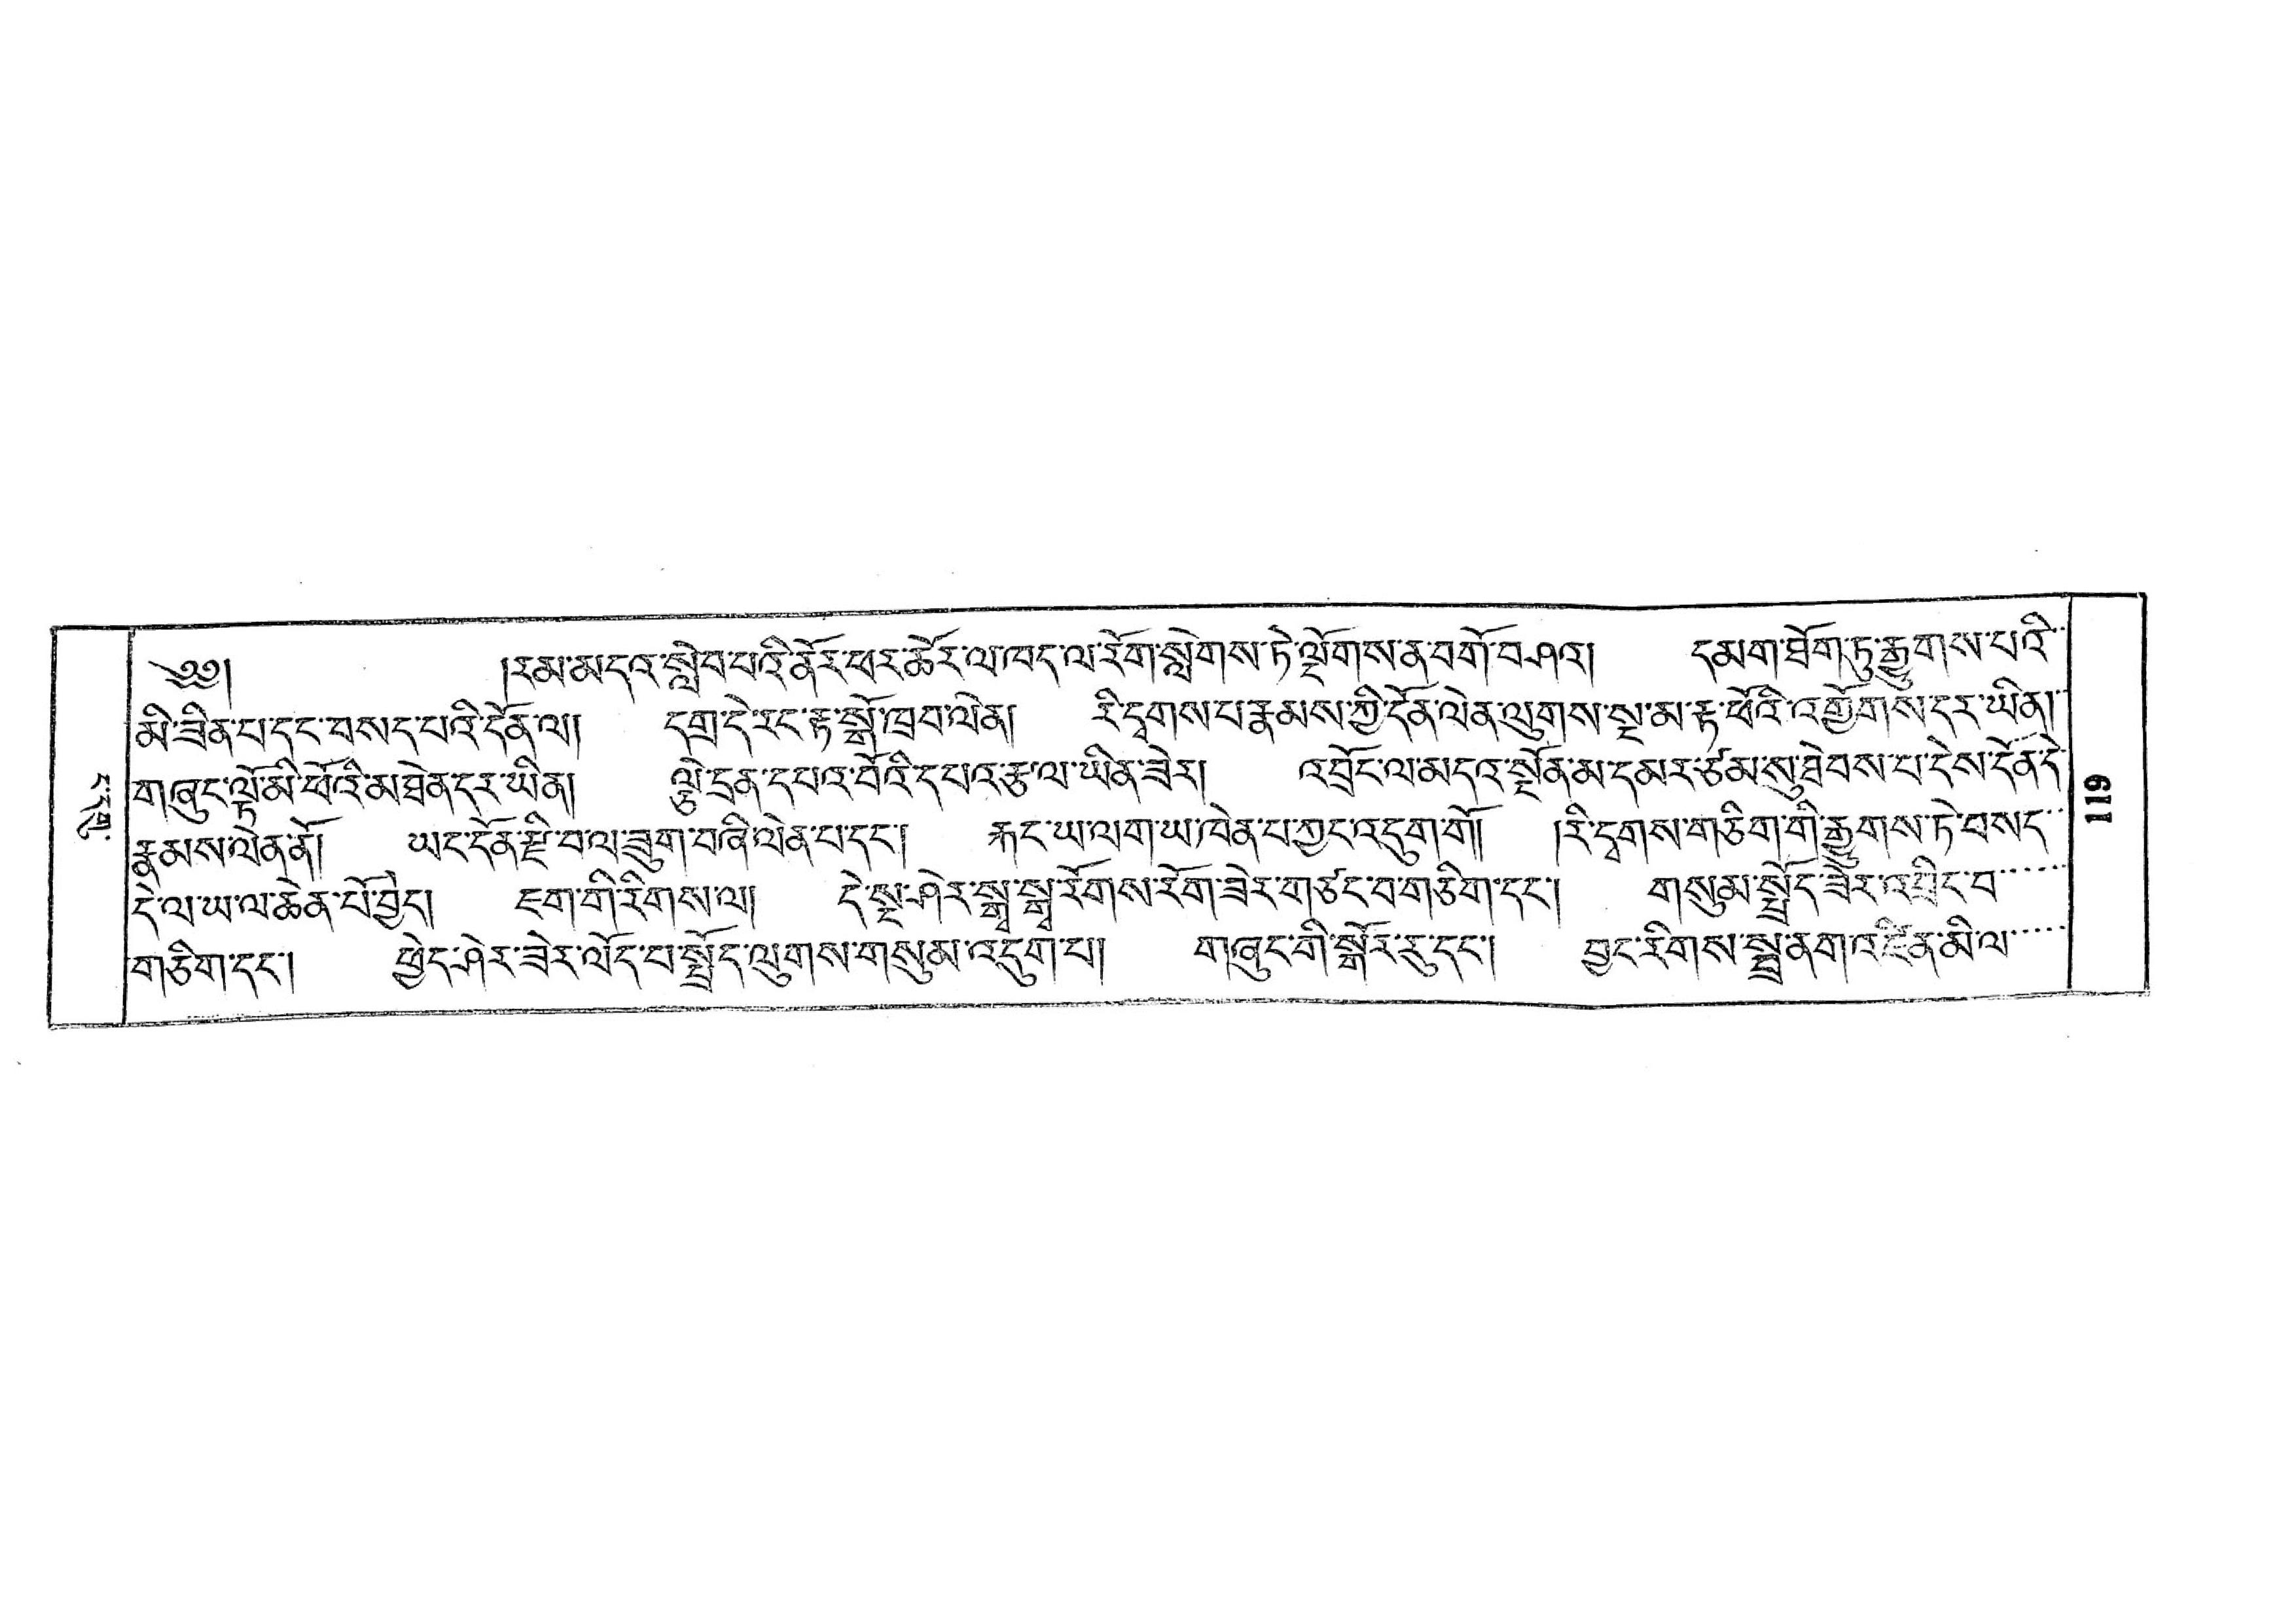 ༄༅། །རམ་མདའ་སླེབ་པའི་ནོར་ཕར་ཚོར་ལ་ཁད་ལ་རོག་སླེགས་ཏེ་ལྡོགས་ན་བགོ་བཤའ། དམག་ཐོག་ཏུ་རྒྱུགས་པའི་
མི་ཟིན་པ་དང་བསད་པའི་དོན་ལ། དགྲ་དེ་རང་རྟ་སྒོ་ཁྲབ་ལེན། རི་དྭགས་པ་རྣམས་ཀྱི་དོན་ལེན་ལུགས་སྔ་མ་རྟ་ཕོའི་འགྱོགས་དར་ཡིན།
གཞུང་ལྟོ་མི་ཕོའི་མཐེན་དར་ཡིན། ལྕེ་དྲན་དཔའ་བོའི་དཔའ་རྩལ་ཡིན་ཟེར། འབྲོང་ལ་མདའ་སྔོན་མ་དམར་ཙམ་སུ་ཐེབས་པ་དེས་དོན་དེ་
རྣམས་ལེན་ནོ། ཡང་དོན་སྔེ་བ་ལ་ཟུག་བཞི་ལེན་པ་དང་། རྐང་ཡ་ལག་ཡ་ཁེན་པ་ཀྱང་འདུག་གོ། །རི་དྭགས་གཅིག་གི་རྒྱུགས་ཏེ་བསད་
དེ་ལ་ཡལ་ཆེན་པོ་བྱེད། ཇག་གི་རིགས་ལ། དེ་སྔ་ཤེར་སྒྲྭ་སྒྲྭ་རོགས་རོག་ཟེར་གཙང་བ་གཅིག་དང་། གསུམ་སྤྲོད་ཟེར་འབྲིང་བ་
གཅིག་དང་། ཕྱེད་ཤེར་ཟེར་ལོད་པ་སྤྲོད་ལུགས་གསུམ་འདུག་པ། གཞུང་གི་སྒོར་རུ་དང་། བྱང་རིགས་སྦྲ་ནག་འཛིན་མི་ལ་
119